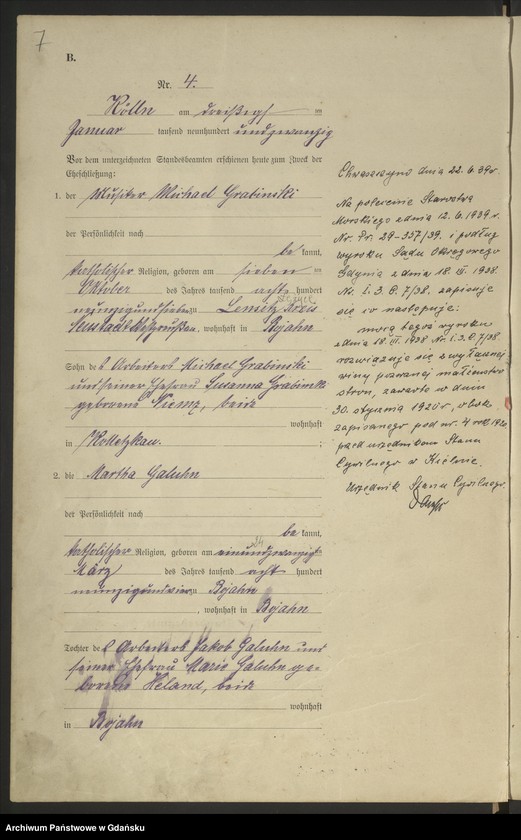 7
B.
Nr. 4.
Kölln am dreißigsten
Januar tausend neunhundert undzwanzig
Vor dem unterzeichneten Standesbeamten erschienen heute zum Zweck der
Eheschließung:
1. der Musiker Michael Grabinski
der Persönlichkeit nach
be kannt,
katholischer Religion, geboren am sieben
Oktober des Jahres tausend acht hundert
neunzigundsieben zu Kreis
Neustadt Westpreußen, wohnhaft in Bojahn
Sohn des Arbeiters Michael Grabinski
und seiner Ehefrau Susanna Grabinski
geborene Niemz, beide
wohnhaft
in Kolletzkau. ;
2. die Martha Galuhn
der Persönlichkeit nach
be kannt,
katholischer Religion, geboren am einundzwanzigst
März des Jahres tausend acht hundert
neunzigundvier zu Bojahn
, wohnhaft in Bojahn
Tochter des Arbeiters Jakob Galuhn und
seiner Ehefrau Marie Galuhn ge-
borene Heland, beide
wohnhaft
in Bojahn
Chwaszczyno dnia 22.6.39r.
Na polecenie Starostwa
Morskiego z dnia 12.6.1939 r.
Nr. Pr. 29-357/39. i podług
wyroku Sadu Okręgowego
Gdynia z dnia 18.III.1938.
Nr. I.3.C.7/38. zapisuje
się co następuje:
mocą tegoż wyroku
z dnia 18.III.1938 Nr. I.3.C.7/38
rozwiązuje się z wyłącznej
winy pozwanej małżeństwo
stron, zawarte w dniu
30. stycznia 1920 r, obok
zapisanego pod nr. 4 rok 1920
przed urzędnikiem Stanu
Cywilnego w Kielnie.
Urzędnik Stanu Cywilnego
Archiwum Państwowe w Gdańsku